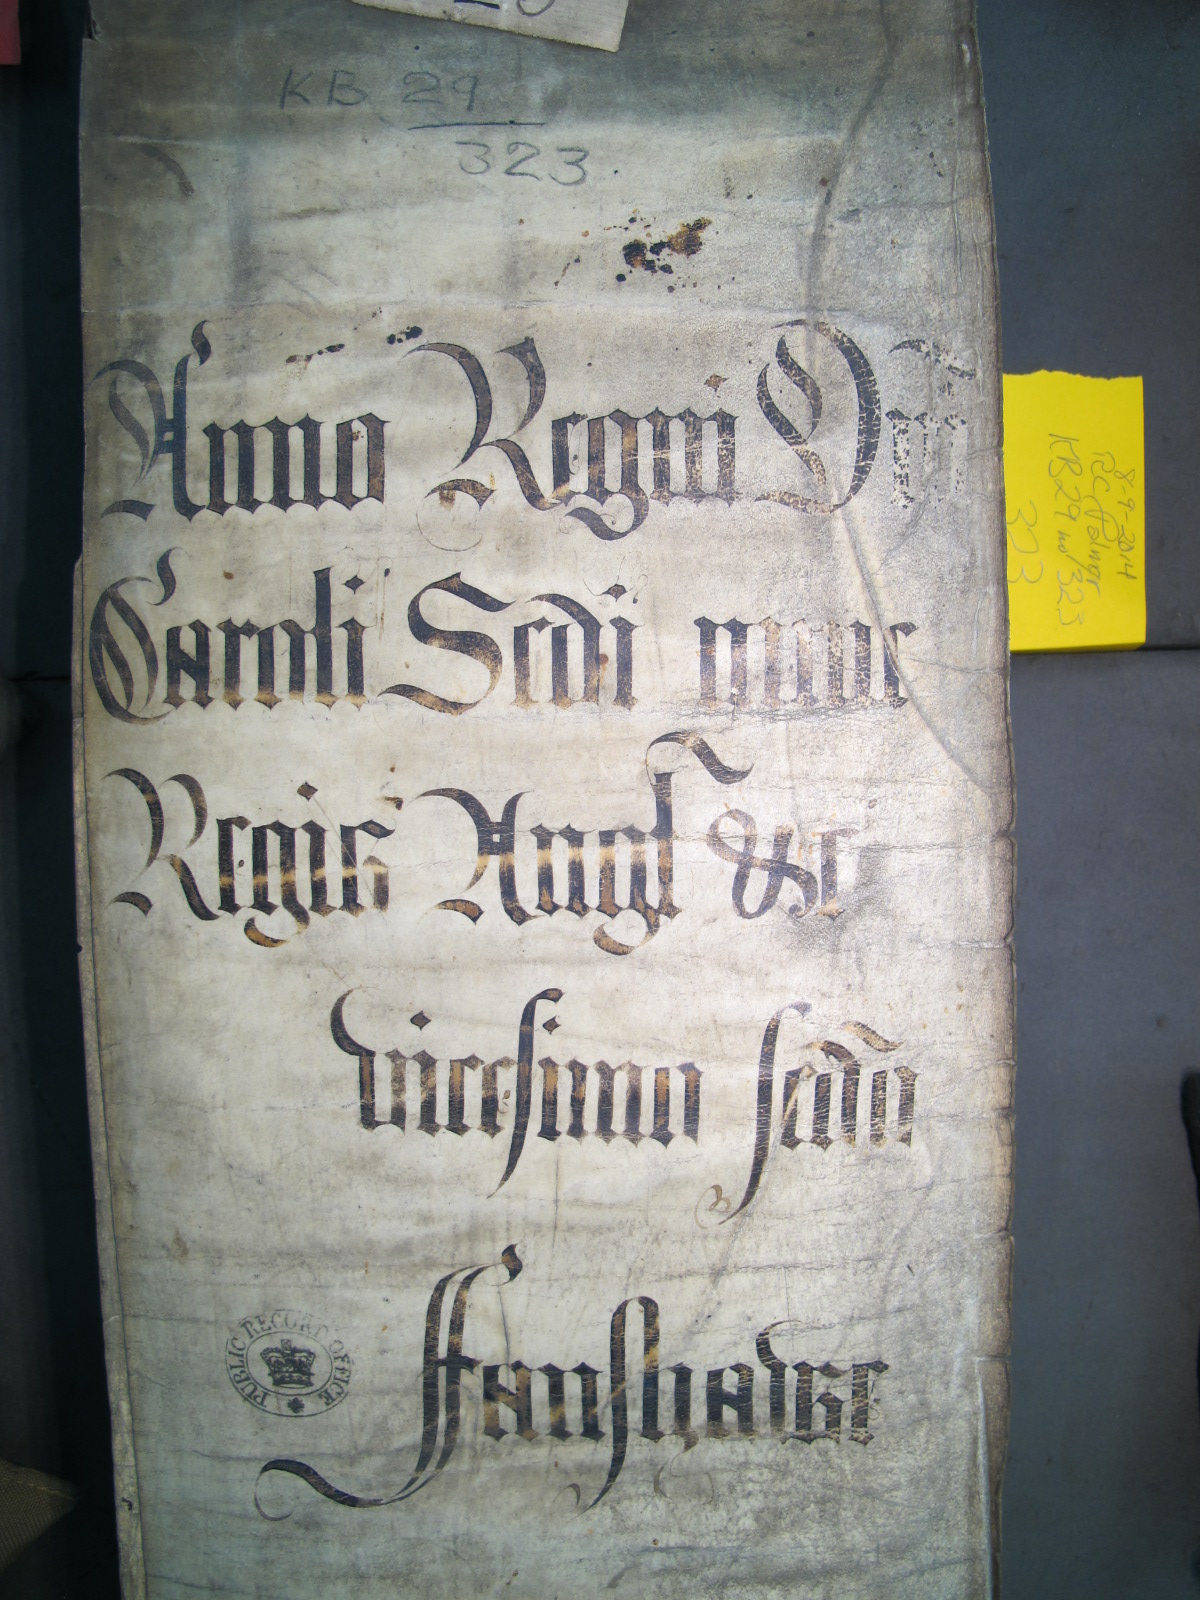 KB 29
323.
Anno Regni Dñi
Caroli Scdi nunc
Regis Angl &c
vicesimo scdo
ffanshawe
PUBLIC RECORD OFFICE
8-9-2014
KB29 no/323
323